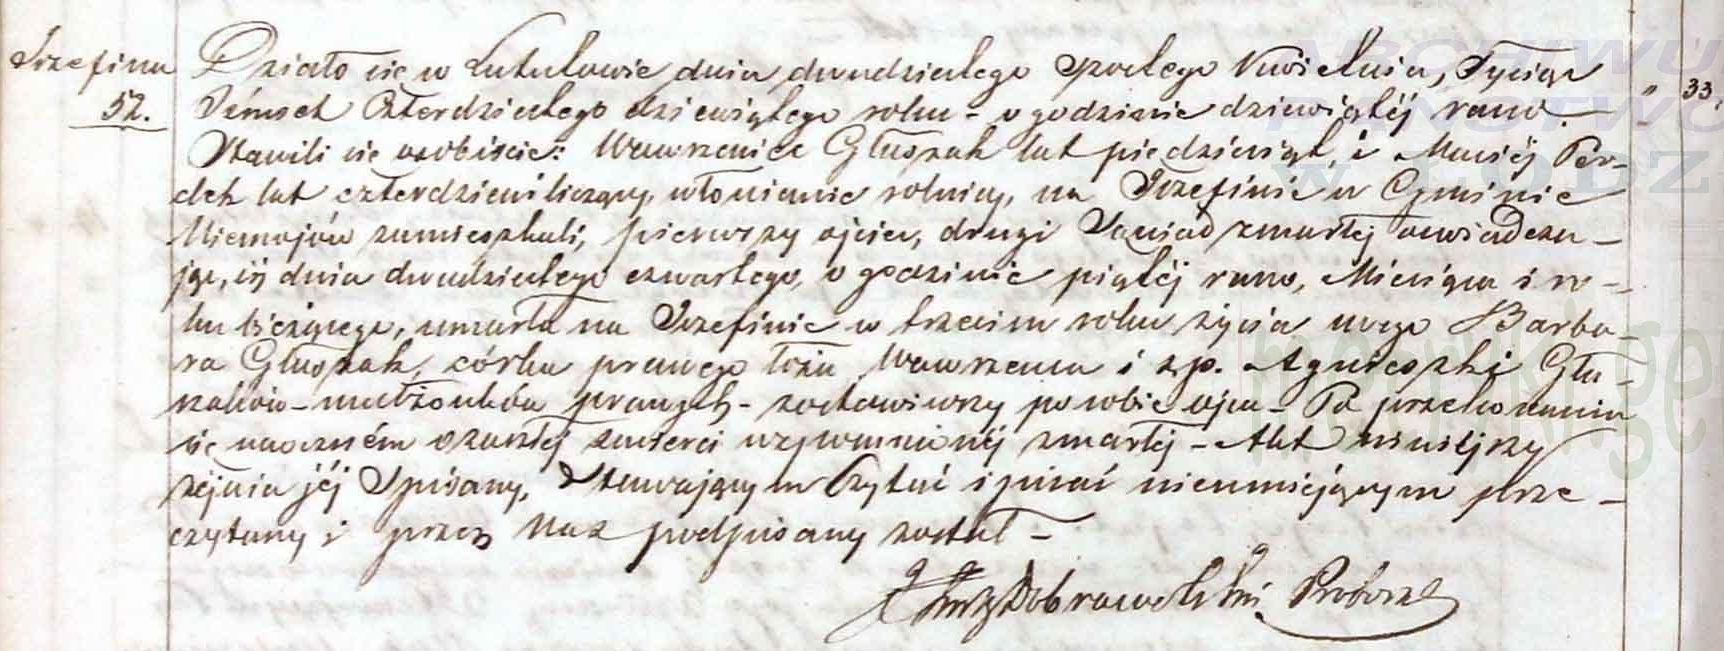 Józefina
52.
Działo się w Lututowie dnia dwudziestego szóstego Kwietnia, Tysiąc
Ośmset Czterdziestego dziewiątego roku – o godzinie dziewiątéj rano. –
Stawili się osobiście: Wawrzeniec Głuszak lat piędziesiąt, i Maciéj Per-
dek lat czterdzieści liczący, włościanie rolnicy, na Józefinie w Gminie
Niemojów zamieszkali, pierwszy ojciec, drugi Sąsiad zmarłéj oświadcza-
jąc, iż dnia dwudziestego czwartego, o godzinie piątéj rano, Miesiąca i ro-
ku bieżącego, umarła na Józefinie w trzecim roku życia swego Barba-
ra Głuszak, córka prawego łoża Wawrzeńca i ś.p. Agnieszki Głu-
szaków – małżonków prawych – zostawiwszy po sobie ojca – Po przekonaniu
się naoczném o zaszłéj śmierci wspomnionéj zmarłéj – Akt niniejszy
zejścia jéj Spisany, Stawającym czytać i pisać nieumiejącym prze-
czytany i przez Nas podpisany został –
Dobrowolski Proboszcz
33
ARCHIWU
PAŃSTWO
w ŁODZ
henryk.ge